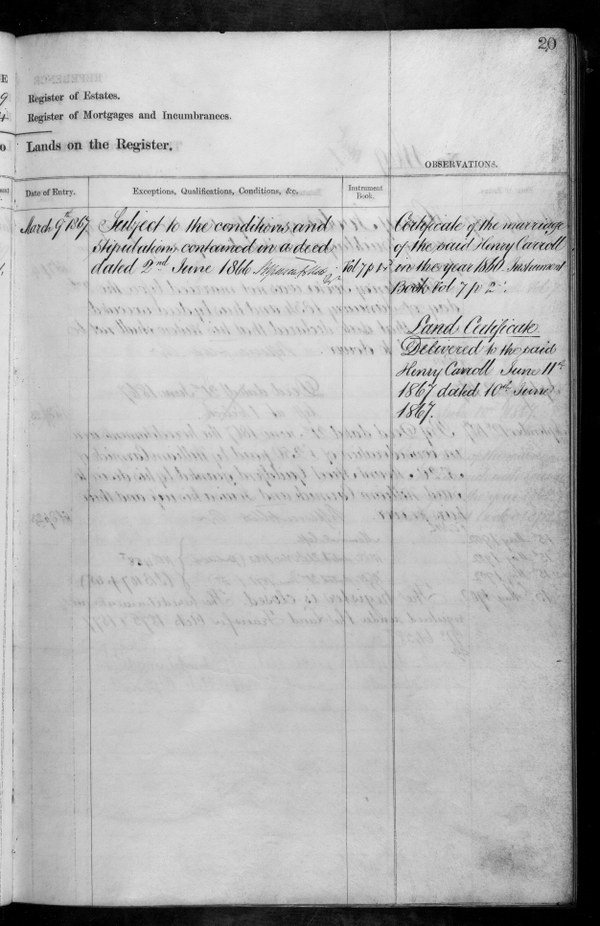 20
Register of Estates.
Register of Mortgages and Incumbrances.
Lands on the Register.
OBSERVATIONS.
Date of Entry.
Exceptions, Qualifications, Conditions, &c.
Instrument
Book.
March 9th 1867
Subject to the conditions and
stipulations contained in a deed
dated 2nd June 1866
Vol 7 p 1
Certificate of the marriage
of the said Henry Carroll
in the year 1860. Instrument
Book Vol 7 p 2.
Land Certificate
Delivered to the said
Henry Carroll June 11th
1867 dated 10th June
1867.